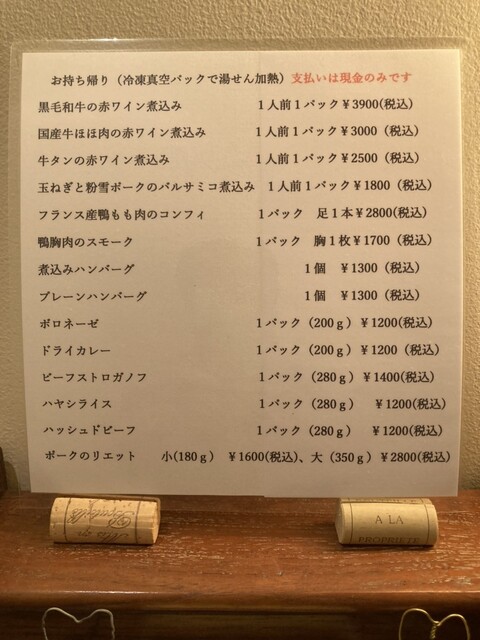 お持ち帰り（冷凍真空パックで湯せん加熱）支払いは現金のみです
黒毛和牛の赤ワイン煮込み　1人前1パック¥3900(税込)
国産牛ほほ肉の赤ワイン煮込み　1人前1パック¥3000（税込）
牛タンの赤ワイン煮込み　1人前1パック¥2500（税込）
玉ねぎと粉雪ポークのバルサミコ煮込み　1人前1パック¥1800（税込）
フランス産鴨もも肉のコンフィ　1パック　足1本¥2800(税込)
鴨胸肉のスモーク　1パック　胸1枚¥1700（税込）
煮込みハンバーグ　1個　¥1300（税込）
プレーンハンバーグ　1個　¥1300（税込）
ボロネーゼ　1パック（200ｇ）¥1200(税込)
ドライカレー　1パック（200ｇ）¥1200（税込）
ビーフストロガノフ　1パック（280ｇ）¥1400(税込)
ハヤシライス　1パック（280ｇ）　¥1200(税込)
ハッシュドビーフ　1パック（280ｇ）　¥1200(税込)
ポークのリエット　小(180ｇ)　¥1600(税込)、大（350ｇ）¥2800(税込)
A LA
PROPRIETE